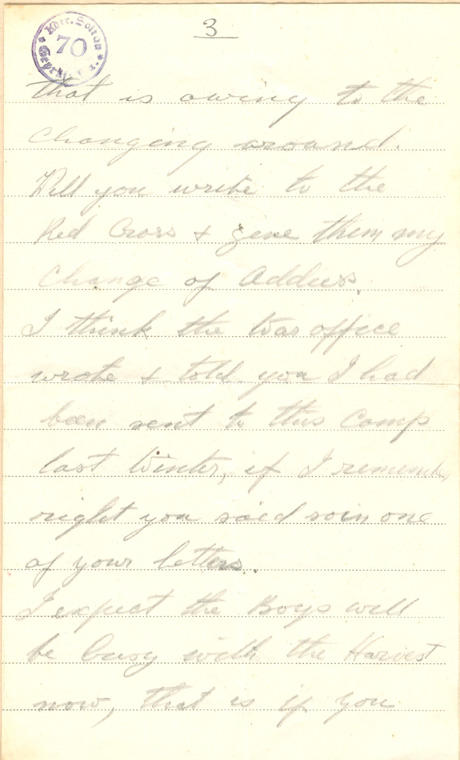 3
Kdtr. Soltau
70
Geprüft
that is owing to the
changing around.
Will you write to the
Red Cross & give them my
Change of Address.
I think the War office
wrote & told you I had
been sent to this Camp
last Winter, if I remember
right you said so in one
of your letters.
I expect the Boys will
be busy with the Harvest
now, that is if you